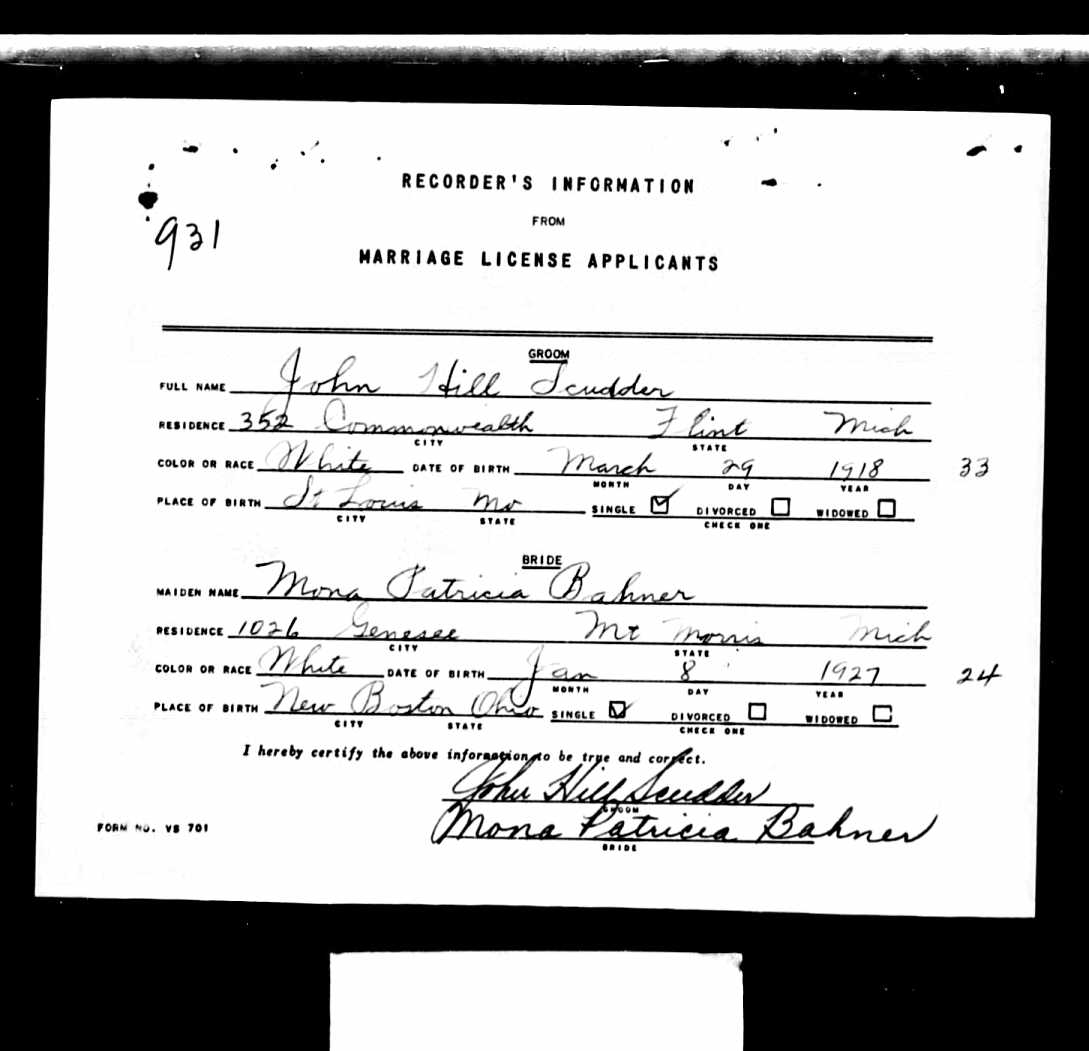 RECORDER'S INFORMATION
FROM
931
MARRIAGE LICENSE APPLICANTS
GROOM
FULL NAME John Hill Scudder
RESIDENCE 352 Commonwealth Flint Mich
CITY STATE
COLOR OR RACE White DATE OF BIRTH March 29 1918 33
MONTH DAY YEAR
PLACE OF BIRTH St Louis Mo SINGLE DIVORCED WIDOWED
CITY STATE CHECK ONE
BRIDE
MAIDEN NAME Mona Patricia Bahner
RESIDENCE 1026 Genesee Mt Morris Mich
CITY STATE
COLOR OR RACE White DATE OF BIRTH Jan 8 1927 24
MONTH DAY YEAR
PLACE OF BIRTH New Boston Ohio SINGLE DIVORCED WIDOWED
CITY STATE CHECK ONE
I hereby certify the above information to be true and correct.
John Hill Scudder
GROOM
FORM NO. VS 701
Mona Patricia Bahner
BRIDE